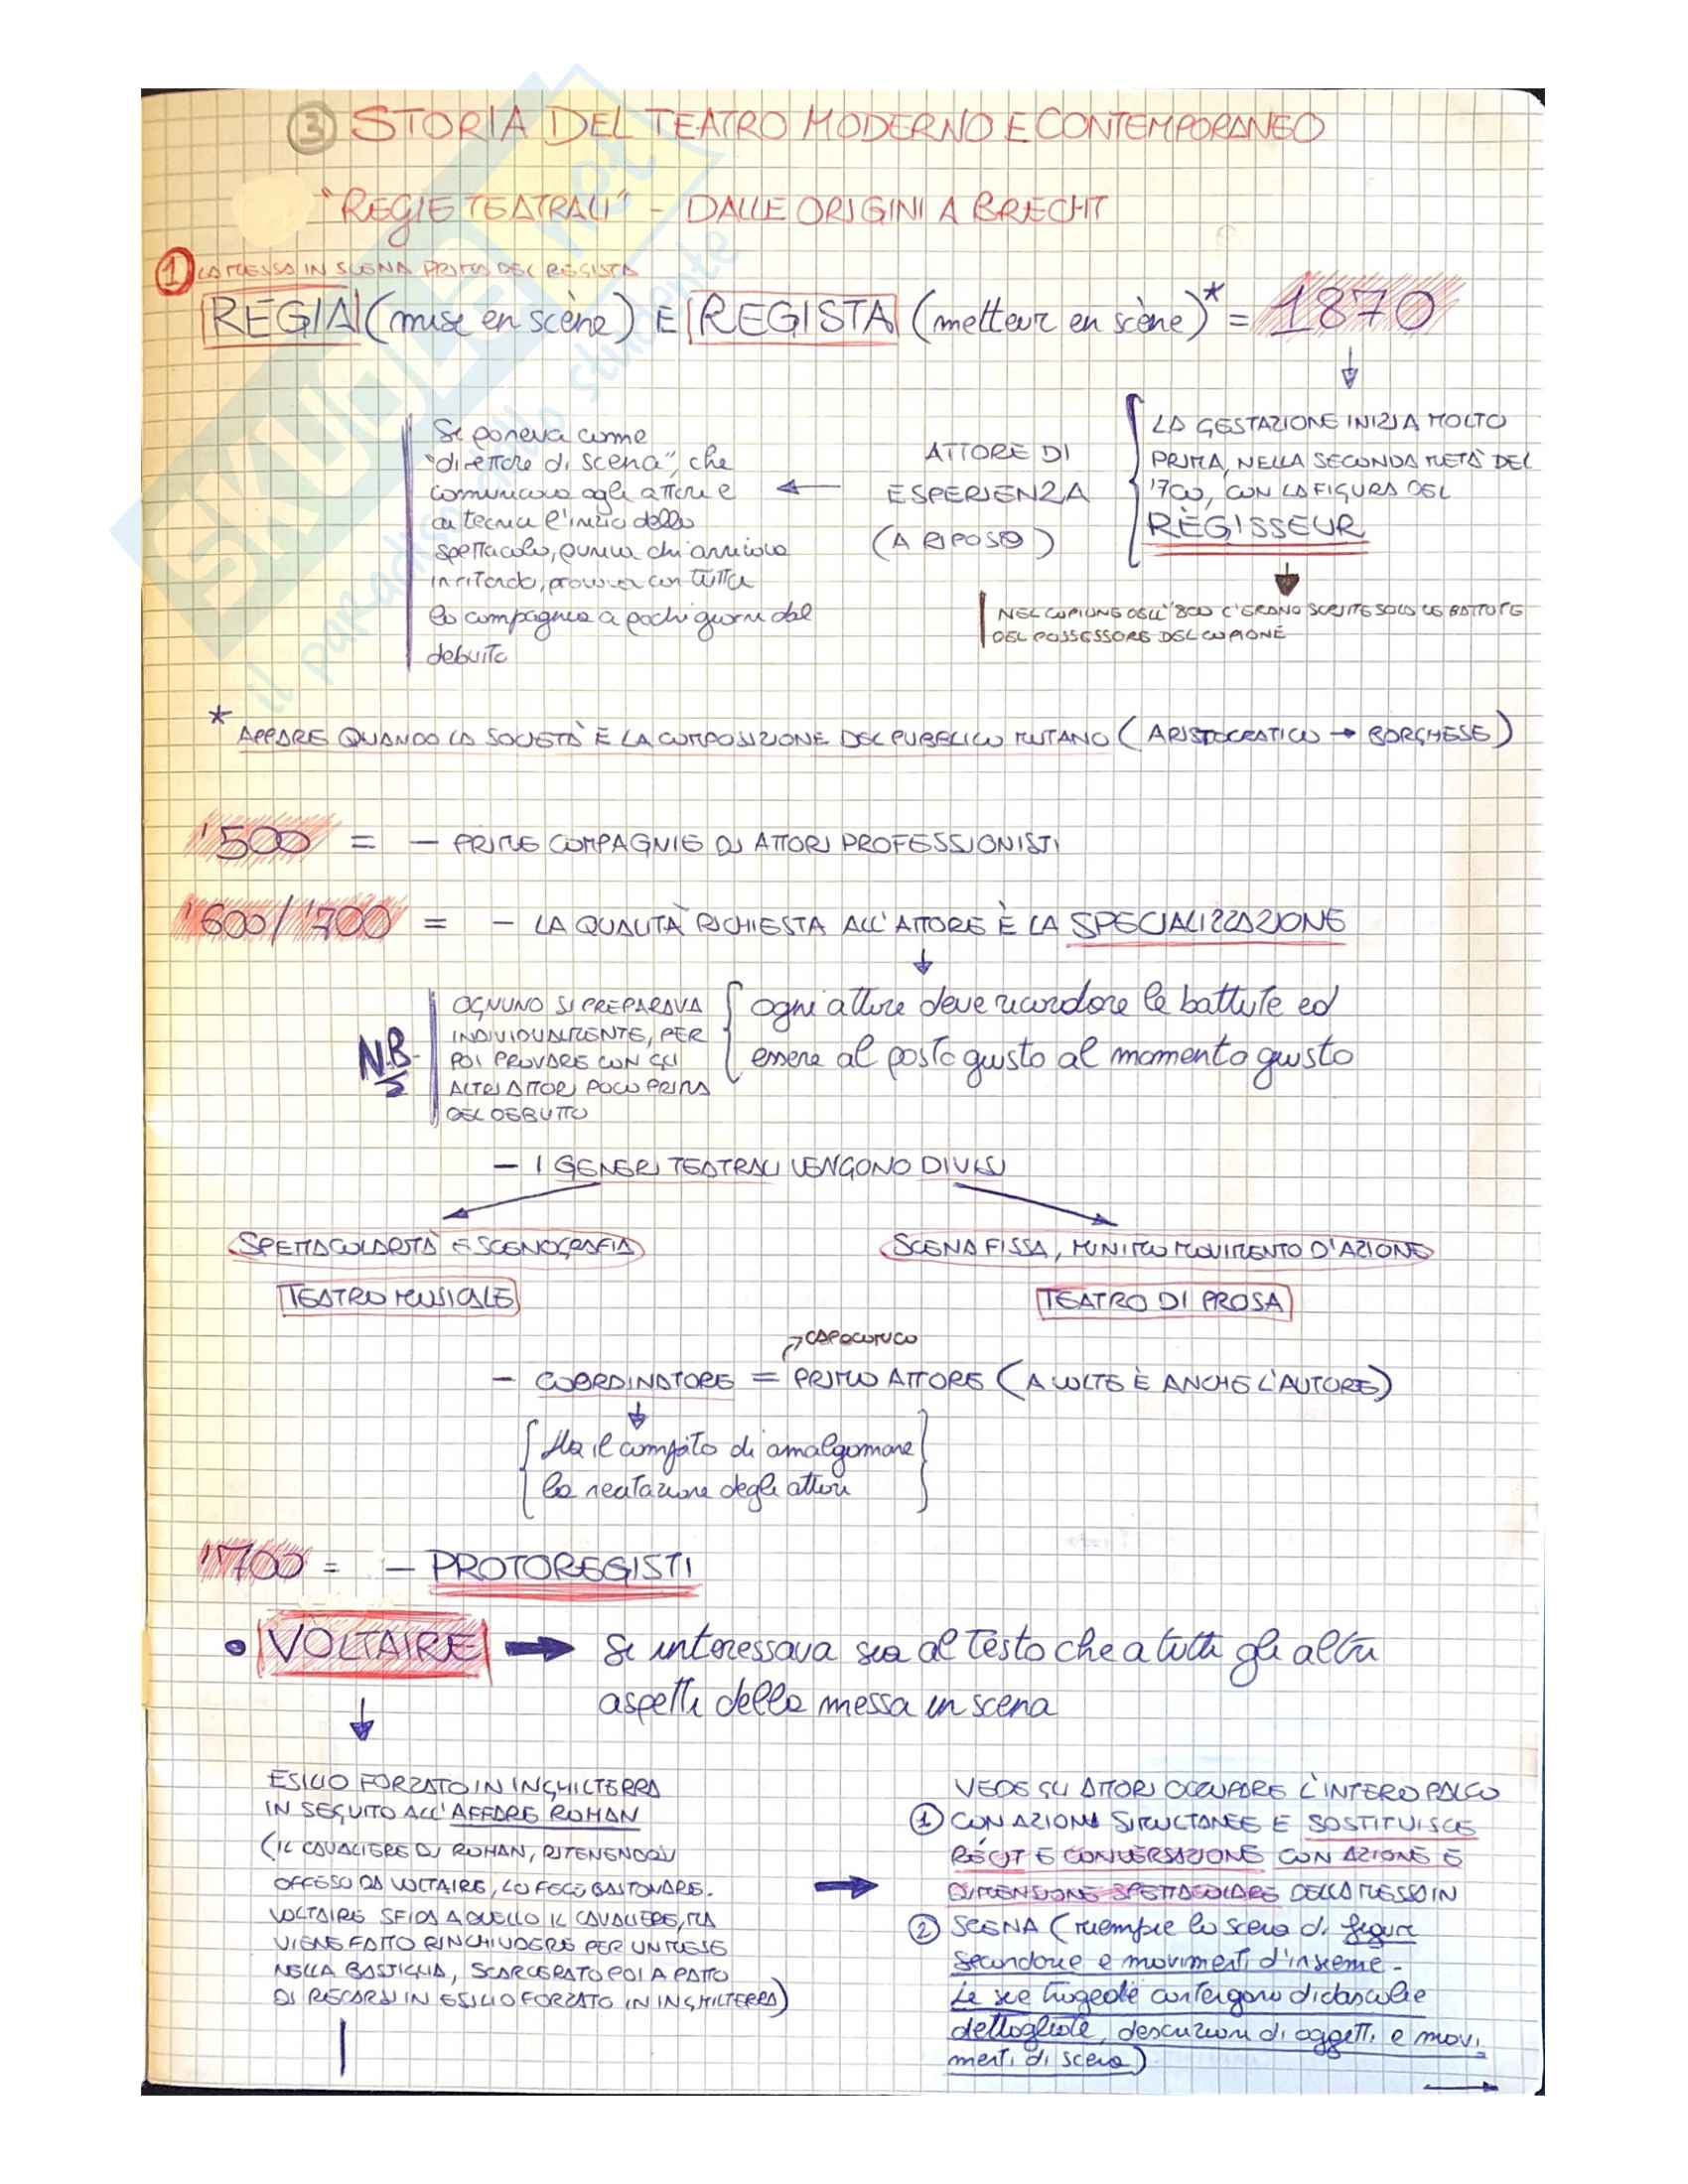 ③ STORIA DEL TEATRO MODERNO E CONTEMPORANEO
"REGIE TEATRALI" - DALLE ORIGINI A BRECHT
① LA MESSA IN SCENA PRIMA DEL REGISTA
REGIA (mise en scène) E REGISTA (metteur en scène)* = 1870
LA GESTAZIONE INIZIA MOLTO
PRIMA, NELLA SECONDA METÀ DEL
'700, CON LA FIGURA DEL
RÈGISSEUR
NEL COPIONE DELL'800 C'ERANO SCRITTE SOLO LE BATTUTE
DEL POSSESSORE DEL COPIONE
ATTORE DI
ESPERIENZA
(A RIPOSO)
Si poneva come
"direttore di scena", che
comunicava agli attori e
ai tecnici l'inizio dello
spettacolo, puniva chi arrivava
in ritardo, provava con tutta
la compagnia a pochi giorni dal
debutto
* APPARE QUANDO LA SOCIETÀ E LA COMPOSIZIONE DEL PUBBLICO MUTANO (ARISTOCRATICO → BORGHESE)
'500 = - PRIME COMPAGNIE DI ATTORI PROFESSIONISTI
'600/'700 = - LA QUALITÀ RICHIESTA ALL'ATTORE È LA SPECIALIZZAZIONE
ogni attore deve ricordare le battute ed
essere al posto giusto al momento giusto
N.B.
OGNUNO SI PREPARAVA
INDIVIDUALMENTE, PER
POI PROVARE CON GLI
ALTRI ATTORI POCO PRIMA
DEL DEBUTTO
- I GENERI TEATRALI VENGONO DIVISI
SPETTACOLARITÀ E SCENOGRAFIA
TEATRO MUSICALE
SCENA FISSA, MINIMO MOVIMENTO D'AZIONE
TEATRO DI PROSA
CAPOCOMICO
- COORDINATORE = PRIMO ATTORE (A VOLTE È ANCHE L'AUTORE)
Ha il compito di amalgamare
la recitazione degli attori
'700 = - PROTOREGISTI
• VOLTAIRE → Si interessava sia al testo che a tutti gli altri
aspetti della messa in scena
ESILIO FORZATO IN INGHILTERRA
IN SEGUITO ALL'AFFARE ROHAN
(IL CAVALIERE DI ROHAN, RITENENDOSI
OFFESO DA VOLTAIRE, LO FECE BASTONARE.
VOLTAIRE SFIDA A DUELLO IL CAVALIERE, MA
VIENE FATTO RINCHIUDERE PER UN MESE
NELLA BASTIGLIA, SCARCERATO POI A PATTO
DI RECARSI IN ESILIO FORZATO IN INGHILTERRA)
VEDE GLI ATTORI OCCUPARE L'INTERO PALCO
① CON AZIONI SIMULTANEE E SOSTITUISCE
RÉCIT E CONVERSAZIONE CON AZIONE E
DIMENSIONE SPETTACOLARE DELLA MESSA IN
② SCENA (riempie la scena di figure
secondarie e movimenti d'insieme.
Le sue tragedie contengono didascalie
dettagliate, descrizioni di oggetti e movi
menti di scena)
SKUOLA.net
il paradiso dello studente